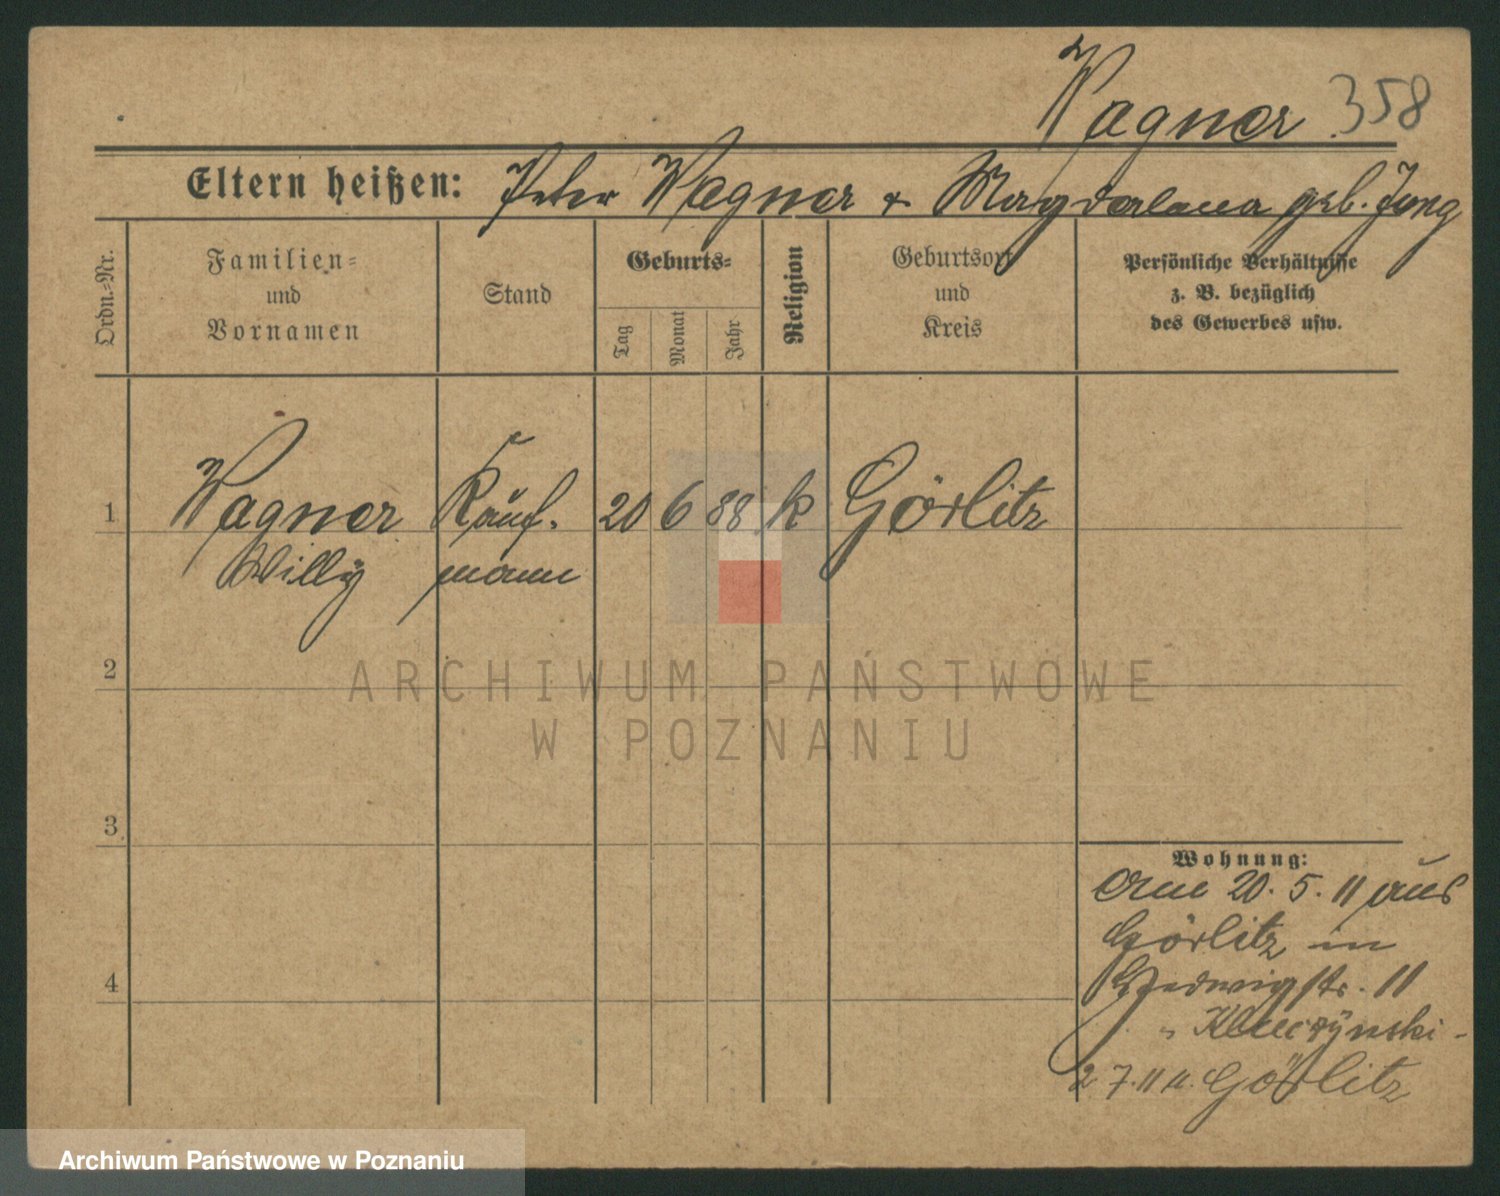 Wagner 358
Eltern heißen: Peter Wagner + Magdalena geb. Jung
Ordn.-Nr.
Familien-
und
Vornamen
Stand
Geburts-
Tag
Monat
Jahr
Religion
Geburtsort
und
Kreis
Persönliche Verhältnisse
z. B. bezüglich
des Gewerbes usw.
1 Wagner Kauf- 20 6 88 k Görlitz
Willy mann
2
3
4
Wohnung:
Am 20.5.11 aus
Görlitz in
Hedwigstr. 11
2 7.11 n. Görlitz
ARCHIWUM PAŃSTWOWE
W POZNANIU
Archiwum Państwowe w Poznaniu